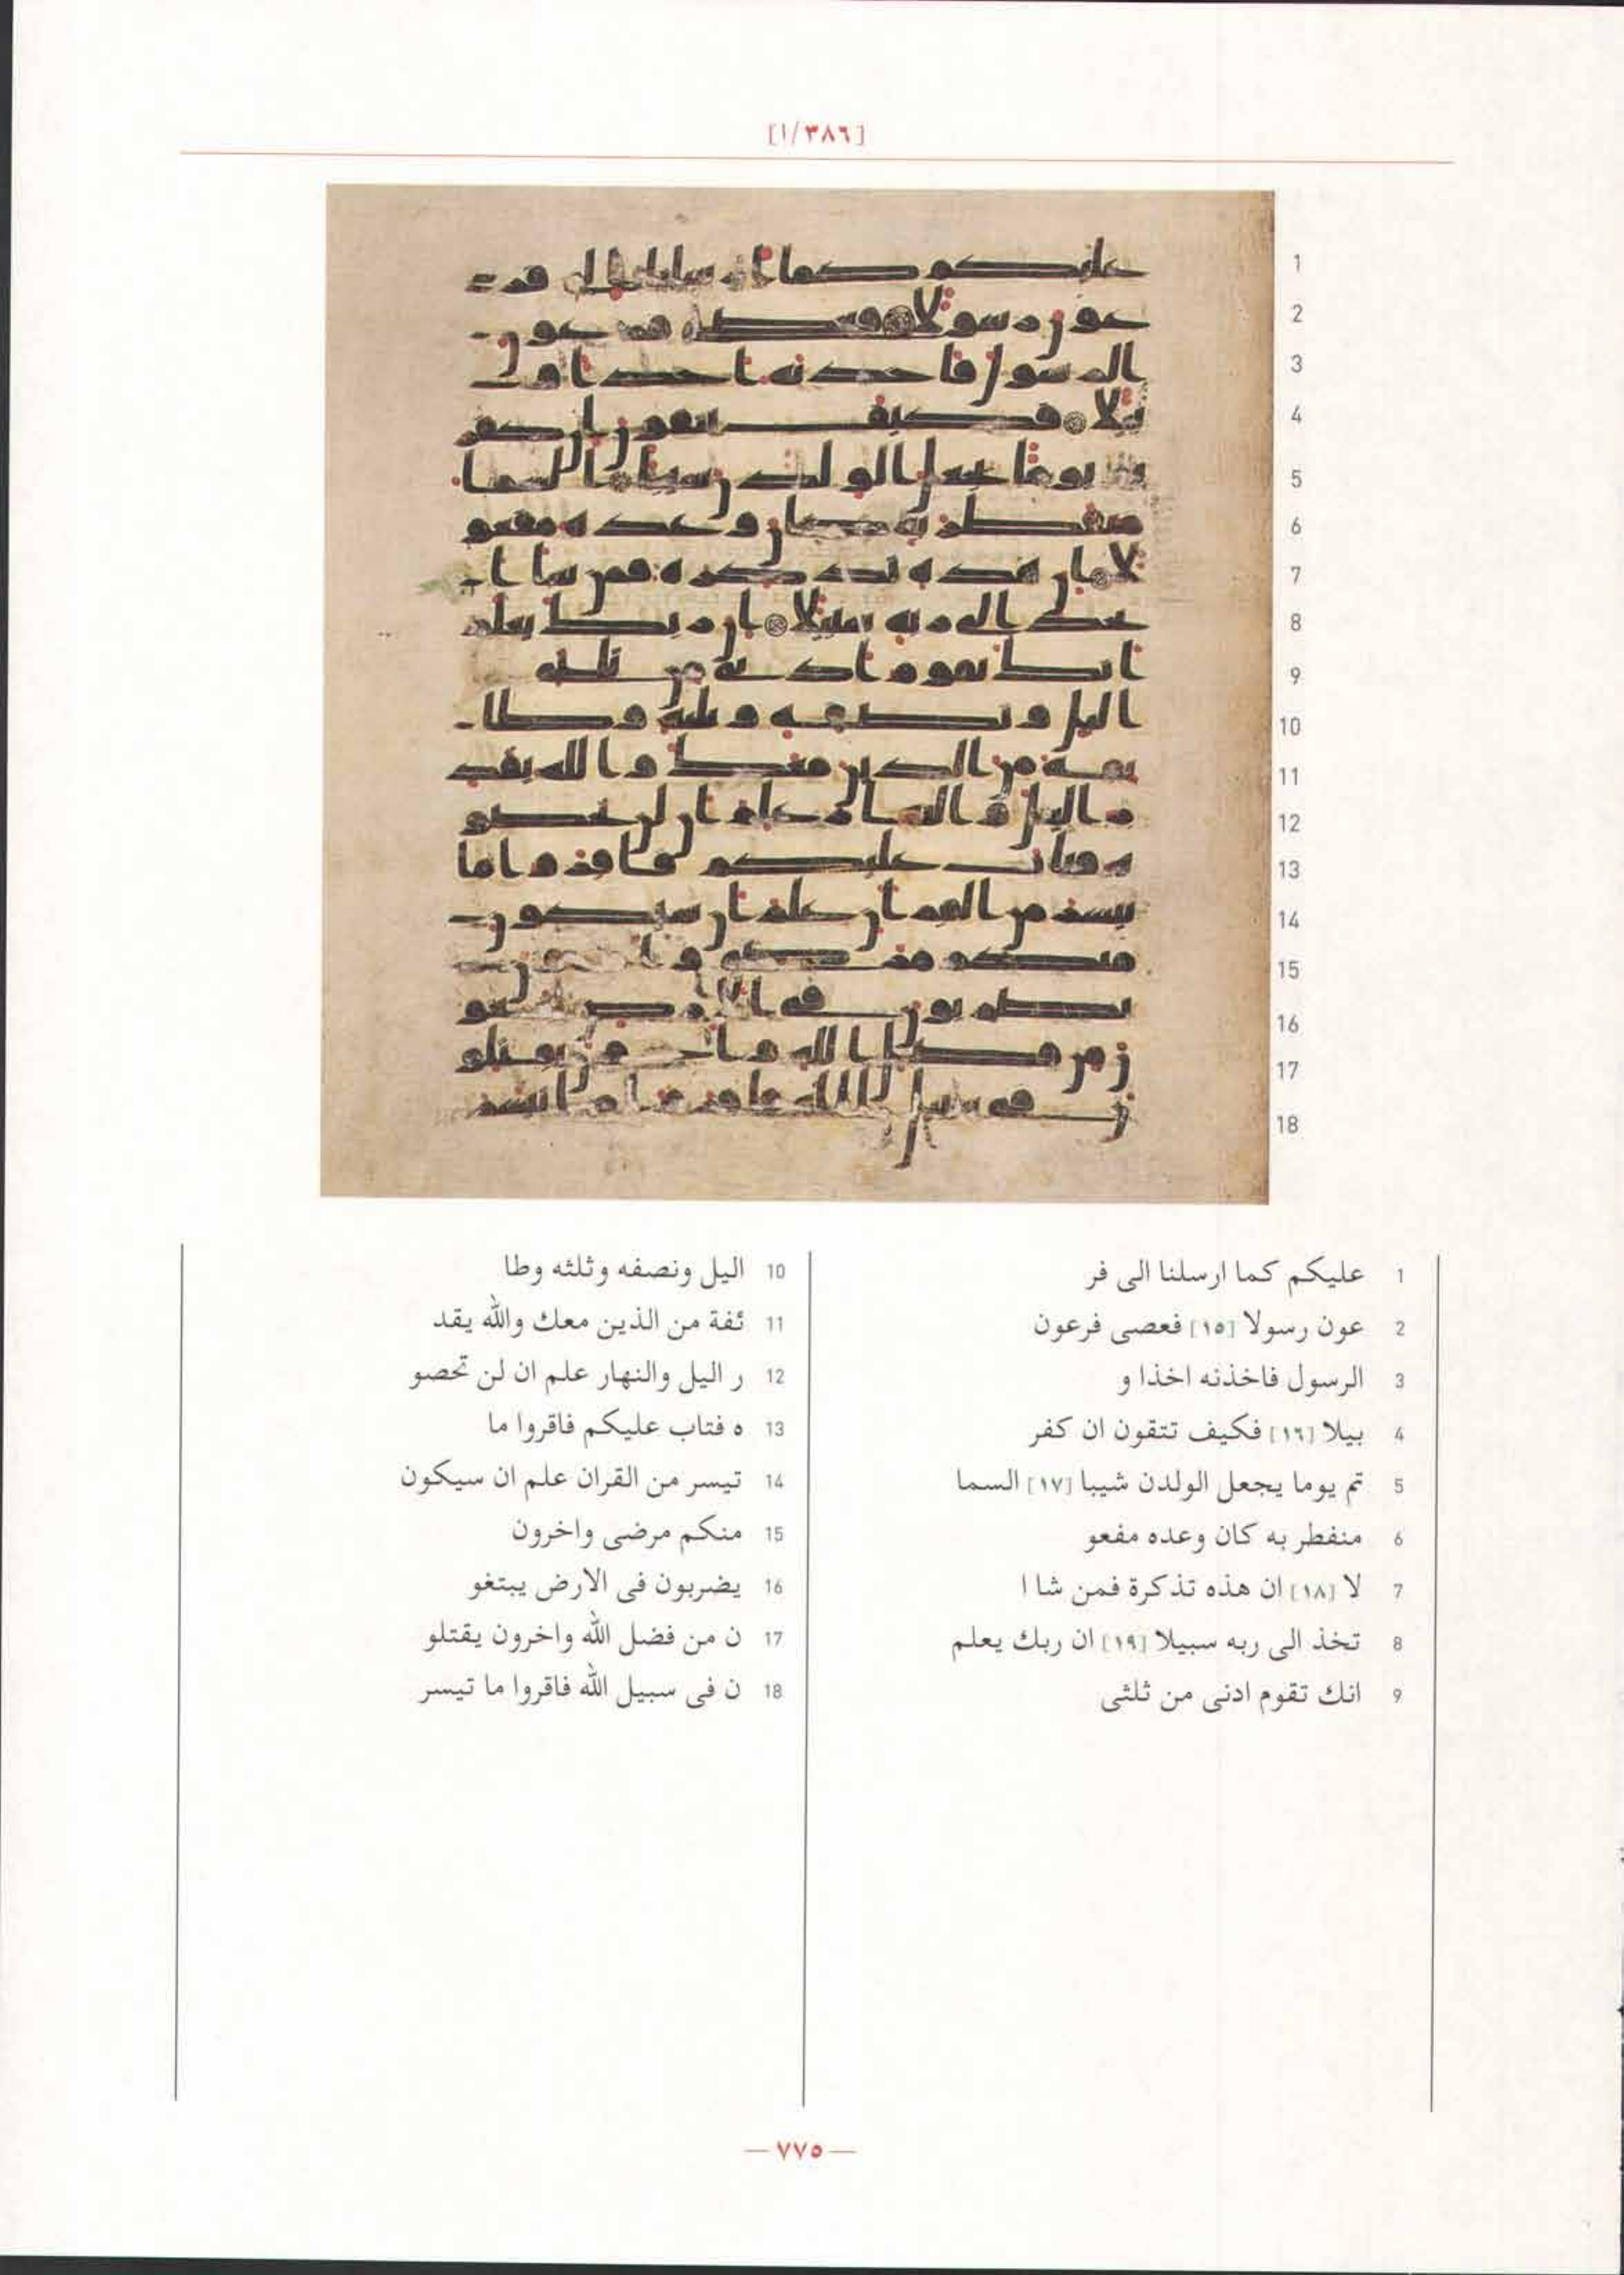 [١/٣٨٦]
1 عليكم كما ارسلنا الى فر
2 عون رسولا [١٥] فعصى فرعون
3 الرسول فاخذنه اخذا و
4 بيلا [١٦] فكيف تتقون ان كفر
5 تم يوما يجعل الولدن شيبا [١٧] السما
6 منفطر به كان وعده مفعو
7 لا [١٨] ان هذه تذكرة فمن شا ا
8 تخذ الى ربه سبيلا [١٩] ان ربك يعلم
9 انك تقوم ادنى من ثلثى
10 اليل ونصفه وثلثه وطا
11 ئفة من الذين معك والله يقد
12 ر اليل والنهار علم ان لن تحصو
13 ه فتاب عليكم فاقروا ما
14 تيسر من القران علم ان سيكون
15 منكم مرضى واخرون
16 يضربون فى الارض يبتغو
17 ن من فضل الله واخرون يقتلو
18 ن فى سبيل الله فاقروا ما تيسر
— ٧٧٥ —